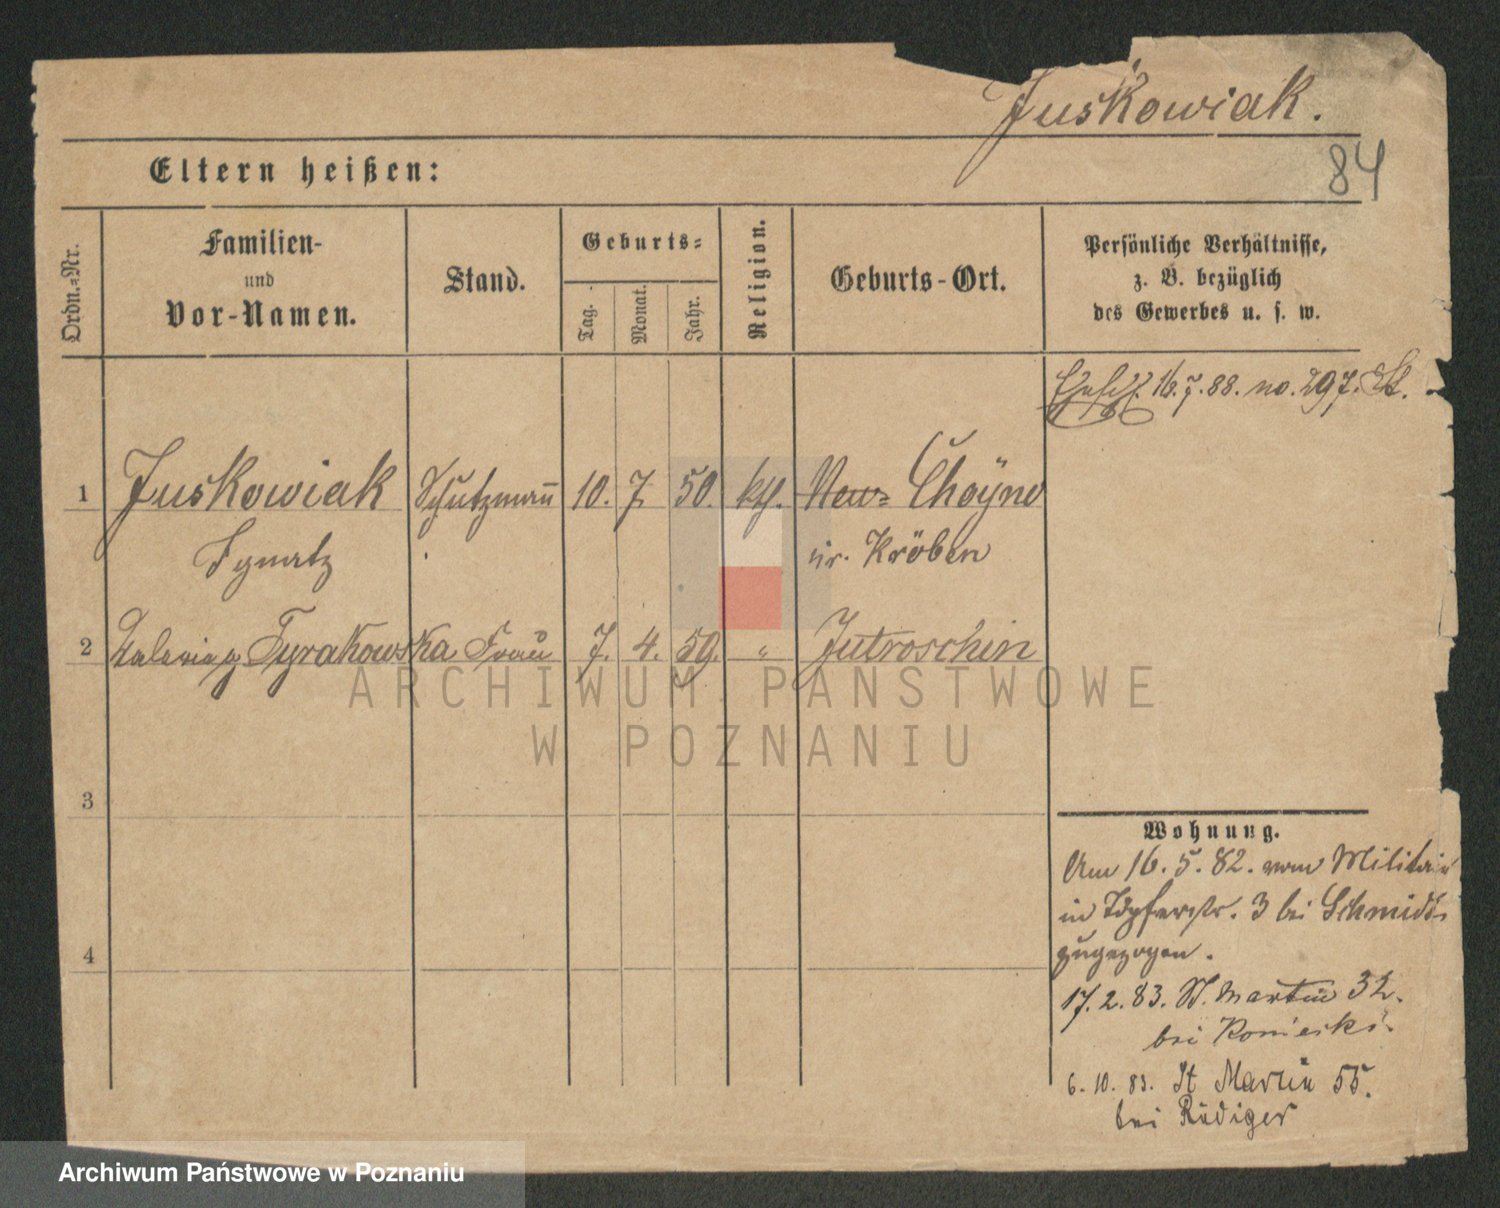 Juskowiak.
84
Eltern heißen:
Ordn.-Nr.
Familien-
und
Vor-Namen.
Stand.
Geburts-
Tag.
Monat.
Jahr.
Religion.
Geburts-Ort.
Persönliche Verhältnisse,
z. B. bezüglich
des Gewerbes u. s. w.
16.7.88. no. 297.
1 Juskowiak Schutzmann 10. 7. 50. kth. Neu- Choyno
Ignatz Kr. Kröben
2 Tyrakowska Frau 7. 4. 59. " Jutroschin
3
4
Wohnung.
Am 16.5.82. vom Militair
in Töpferstr. 3 bei Schmidt
zugezogen.
17.2.83. St. Martin 32.
bei
6.10.83. St Martin 55.
bei Rüdiger
ARCHIWUM PAŃSTWOWE
W POZNANIU
Archiwum Państwowe w Poznaniu